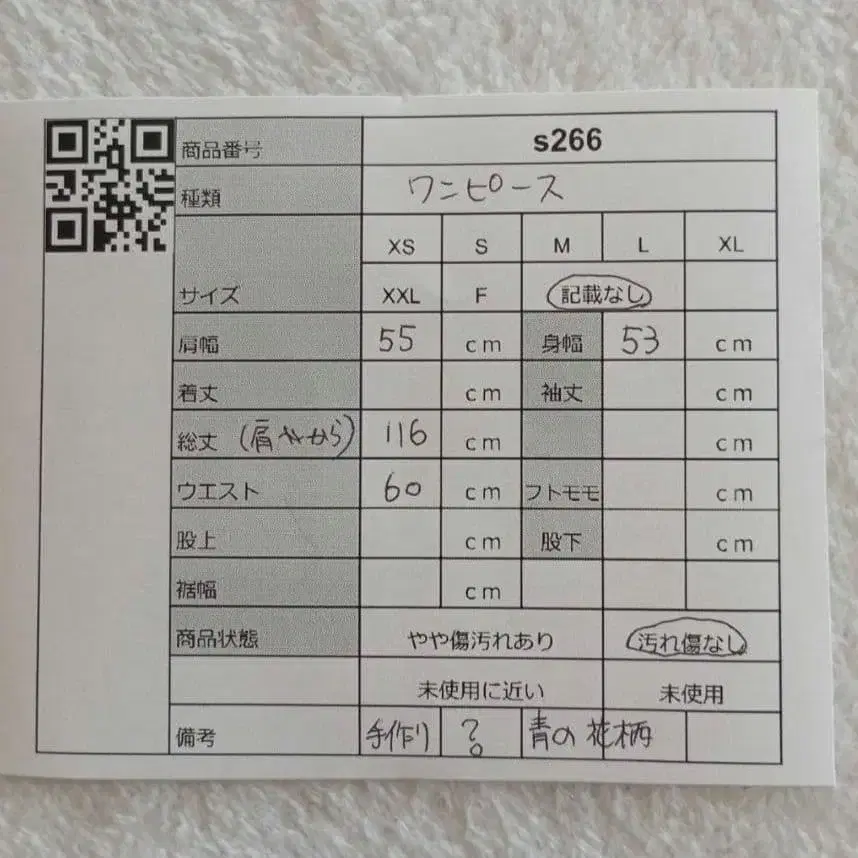 商品番号 s266
種類 ワンピース
XS S M L XL
サイズ XXL F 記載なし
肩幅 55 cm 身幅 53 cm
着丈 cm 袖丈 cm
総丈 (肩から) 116 cm cm
ウエスト 60 cm フトモモ cm
股上 cm 股下 cm
裾幅 cm
商品状態 やや傷汚れあり 汚れ傷なし
未使用に近い 未使用
備考 手作り ? 青の花柄